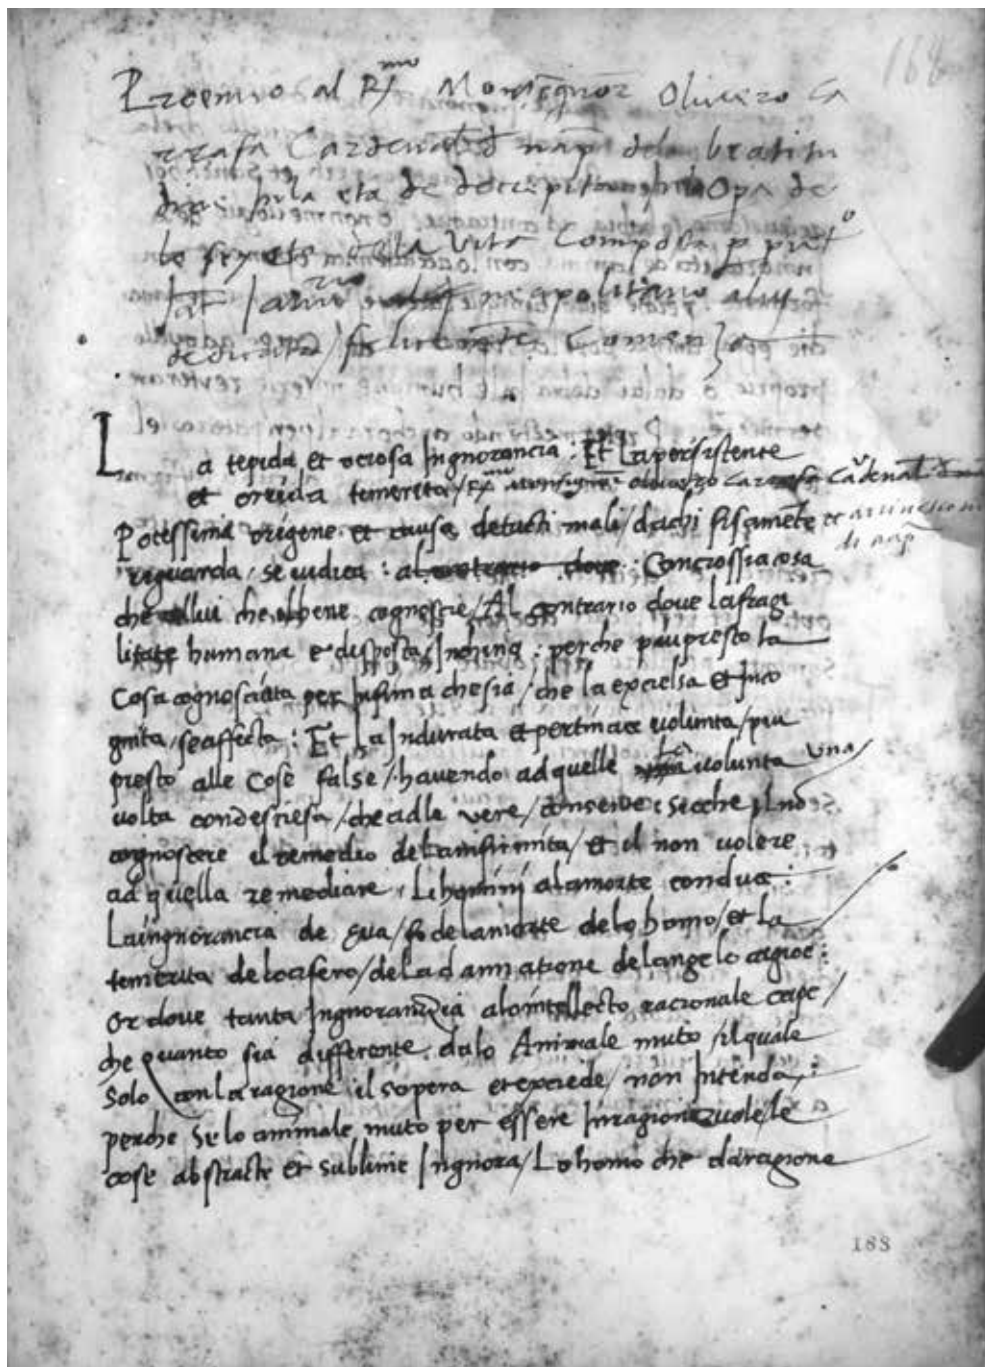 168
Proemio al R.mo Monsegnor Olivero Ca
rrafa Cardenal d nap dela beatitu
dine hula eta de decrepitu Opa de
lo sexeto della vita Composta p
neapolitano alui
dedicata / felicemente Comenza
La tepida et ociosa Ingnorancia : Et La persistente
et orrida temerita / R.mo Monsignor olivero Carrafa Cardenal
Potessima origene et causa detucti mali / dachi fisamete et arcivescovo
di nap
riguarda / se iudica : al contrario dove : Concrossiacosa
che collui che abbene cognoscie / Al contrario dove La fragi
litate humana e disposta / Inchina : perche piu presto la
Cosa cognosciuta per Infima che sia / che la excielsa et Inco
gnita / se affecta : Et La Indurata et pertinace volunta / piu
presto alle Cose false / havendo ad quelle La volunta una
volta condesciesa / che adle vere / consente : secche il no
cognoscere il remedio de La infirmita / et il non volere
ad quella remediare / Li homini ala morte conduce :
La ingnorancia de Eva / fo de la morte de lo homo / et La
temerita de locifero / de La dannatione del angelo cagioe :
Or dove tanta Ingnorancia alo intellecto racionale cape /
che quanto sia differente dalo Animale muto / il quale
Solo con La ragione il sopera et exciede / non Intenda :
perche Se lo animale muto per essere Inragionevole / le
cose abstracte et sublime Ingnora / Lo homo che da ragione
188